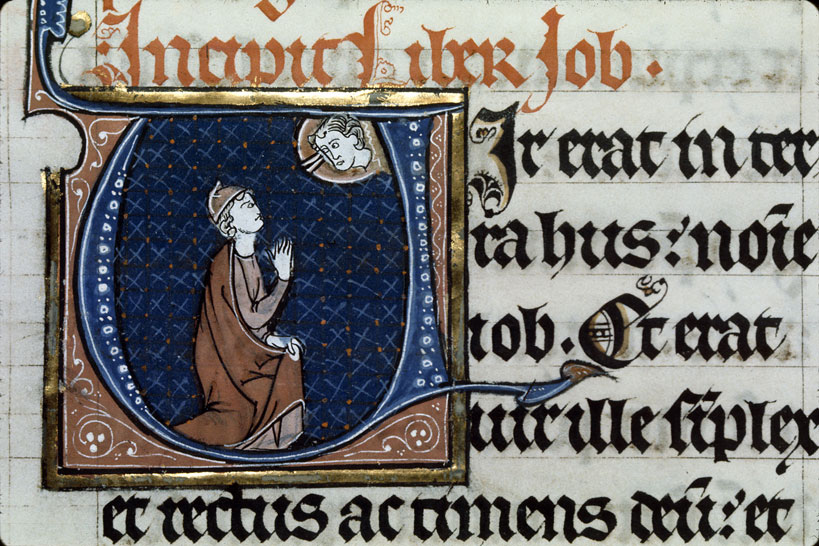 Incipit Liber Job.
Vir erat in ter
ra hus: noīe
iob. Et erat
uir ille sīplex
et rectus ac timens deū: et